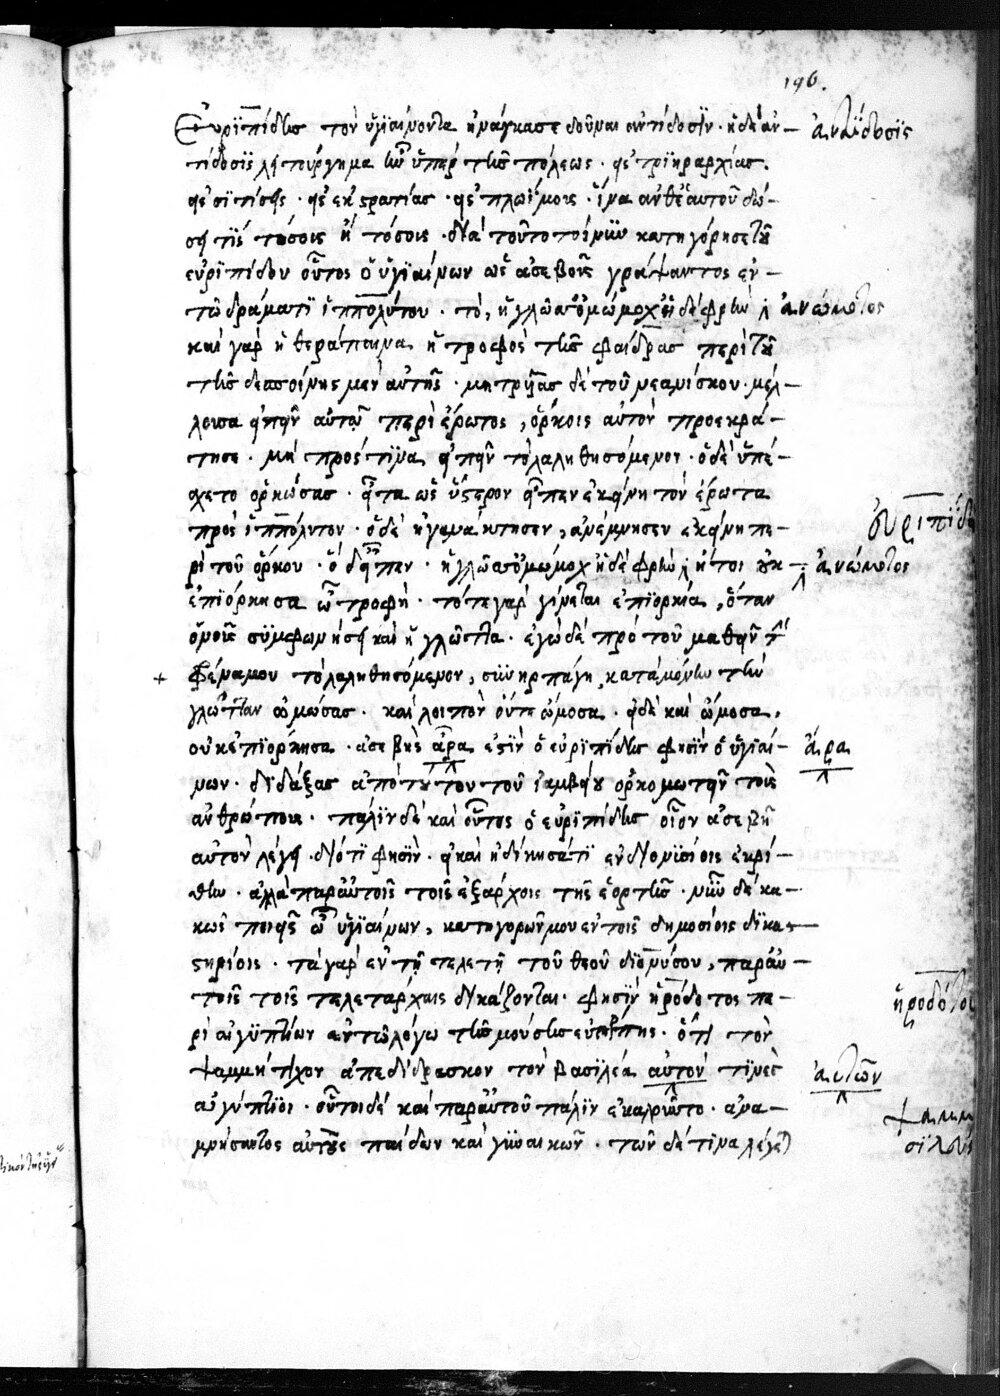 196.
Εὐριπίδης τὸν ὑγιαίνοντα ἠνάγκασε δοῦναι ἀντίδοσιν · ἡ δὲ ἀν–
ἀντίδοσις
τίδοσις λειτούργημα ἦν ὑπὲρ τῆς πόλεως · εἰς τριηραρχίας ·
εἰς σιτίσεις · εἰς ἐκστρατίας · εἰς πλωΐμους · ἵνα ἀνθ' ἑαυτοῦ δώ–
σει τισὶ τόσοις ἢ τόσοις · διὰ τοῦτο τοίνυν κατηγόρησε τοῦ
εὐριπίδου οὗτος ὁ ὑγιαίνων ὡς ἀσεβοῦς γράψαντος ἐν–
τῶ δράματι ἱππολύτου · τό, ἡ γλῶσσ' ὀμώμοχ' ἡ δὲ φρὴν
ἀνώμοτος
καὶ γὰρ ἡ θεράπαινα ἡ τροφὸς τῆς φαίδρας περὶ τοῦ
τῆς δεσποίνης μὲν αὐτῆς · μητρυιᾶς δὲ τοῦ νεανίσκου · μέλ–
λουσα εἰπεῖν αὐτῶ περὶ ἔρωτος, ὅρκοις αὐτὸν προεκρά–
τησε · μὴ πρός τινα εἰπεῖν τὸ λαληθησόμενον · ὁ δὲ ὑπέ–
σχετο ὁρκώσας · εἶτα ὡς ὕστερον εἶπεν ἐκείνη τὸν ἔρωτα
πρὸς ἱππόλυτον · ὁ δὲ ἠγανάκτησεν, ἀνέμνησεν ἐκείνη πε–
εὐριπίδ
ρὶ τοῦ ὅρκου · ὁ δ' εἶπεν · ἡ γλῶσσ' ὀμώμοχ' ἡ δὲ φρὴν ἤτοι οὐκ–
ἀνώμοτος
ἐπιόρκησα ὦ τροφή · τότε γὰρ γίνεται ἐπιορκία, ὅταν
ὀμούσης συμφωνήσει καὶ ἡ γλῶττα · ἐγὼ δὲ πρὸ τοῦ μαθεῖν
φρένα μου τὸ λαληθησόμενον, συνηρπάγη κατὰ μόνην τὴν
γλῶτταν ὀμώσας · καὶ λοιπὸν οὔτε ὤμοσα · εἰ δὲ καὶ ὤμοσα,
οὐκ ἐπιόρκησα · ἀσεβὴς ἄρα ἐστὶν ὁ εὐριπίδης φησὶν ὁ ὑγιαί–
ἄρα
νων · διδάξας ἀπὸ τούτου τοῦ ἰαμβείου ὁρκομωτεῖν τοὺς
ἀνθρώπους · πάλιν δὲ καὶ οὗτος ὁ εὐριπίδης οἷον ἀσεβῆ
αὐτὸν λέγει · διότι φησὶν · εἰ καὶ ἠδίκησά τι ἐν διονυσίοις ἐκρί–
θην · ἀλλὰ παρ' αὐτοῖς τοῖς ἐξάρχοις τῆς ἑορτῆς · νῦν δὲ κα–
κῶς ποιεῖς ὦ ὑγιαίνων, κατηγορῶν μου ἐν τοῖς δημοσίοις δικα–
στηρίοις · τὰ γὰρ ἐν τῆ τελετῆ τοῦ θεοῦ διονύσου, παρ' αὐ–
τοῖς τοῖς τελετάρχαις δικάζονται · φησὶν ἡρόδοτος πε–
ἡρόδοτο
ρὶ αἰγυπτίων ἐν τῶ λόγω τῆς μούσης εὐτέρπης · ὅτι τὸν
ψαμμήτιχον ἀπεδίδρασκον τὸν βασιλέα αὐτὸν τινὲς
αὐτῶν
αἰγύπτιοι · οὗτοι δὲ καὶ παρ' αὐτοῦ πάλιν ἐκαλοῦντο · ἀνα–
ψαμμ
μνήσαντος αὐτοὺς παίδων καὶ γυναικῶν · τῶν δέ τινα λέγεται